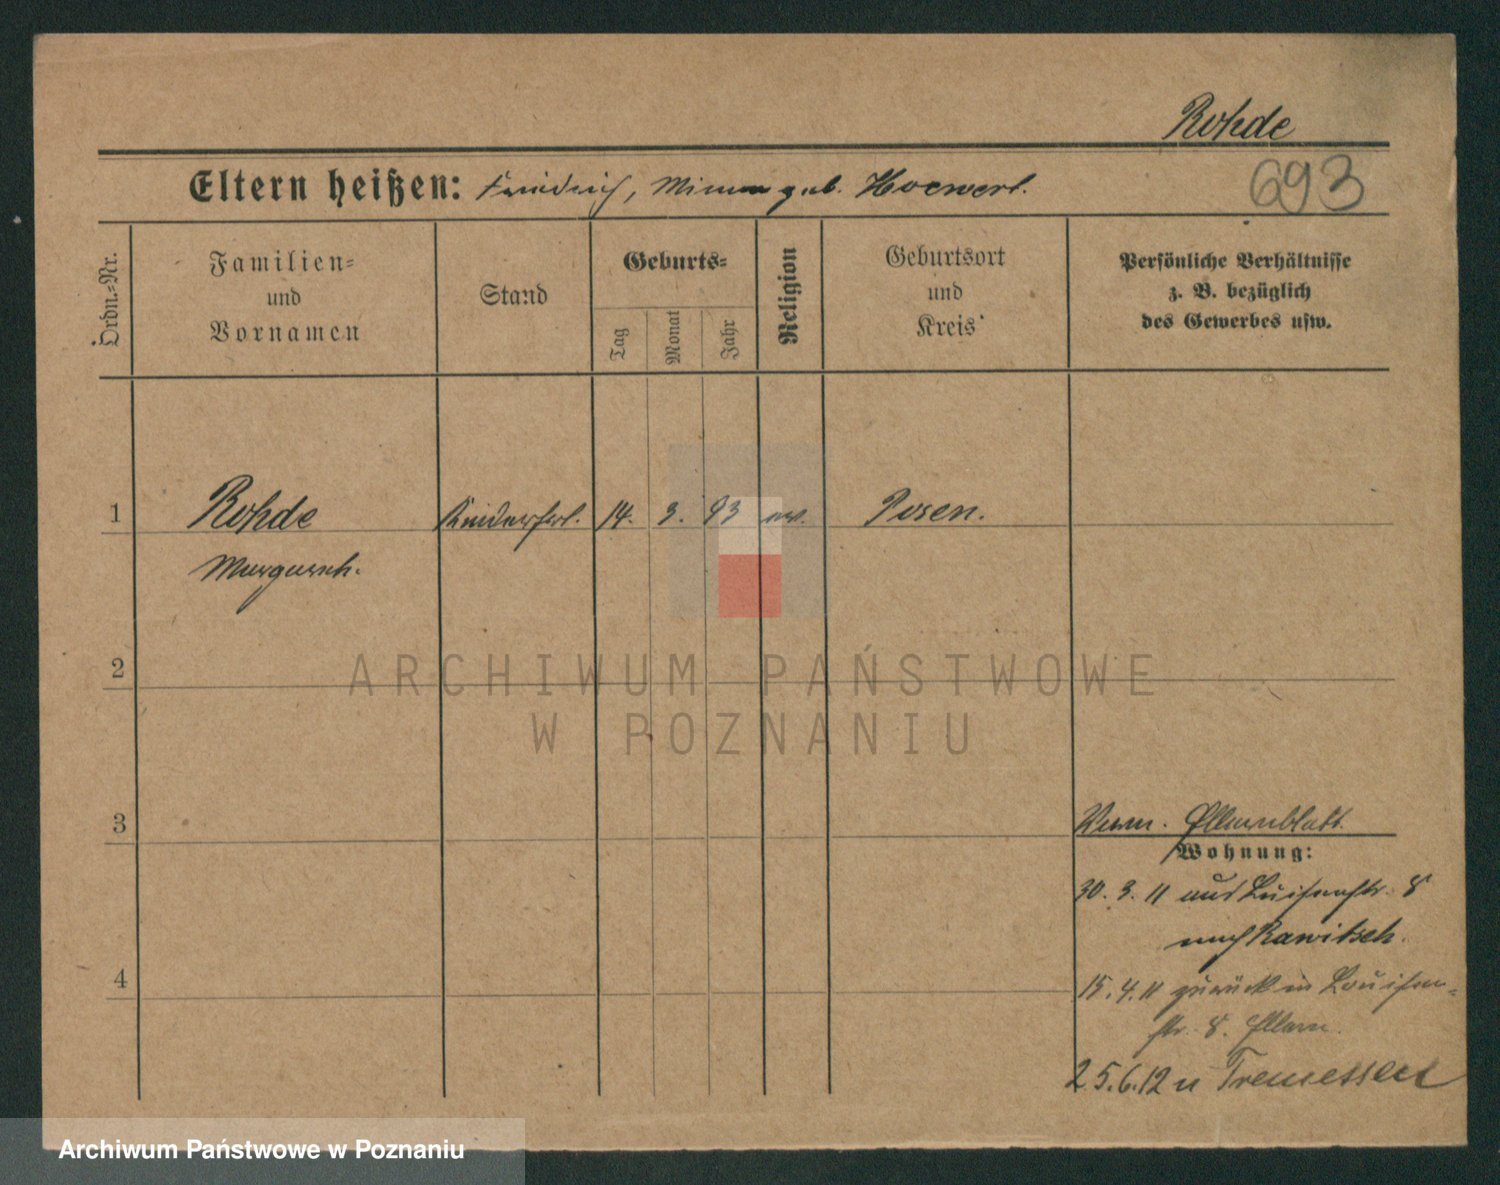 Rohde
693
Eltern heißen: Friedrich, Minna geb. Hoewert.
Ordn.-Nr.
Familien-
und
Vornamen
Stand
Geburts-
Tag
Monat
Jahr
Religion
Geburtsort
und
Kreis
Persönliche Verhältnisse
z. B. bezüglich
des Gewerbes usw.
1 Rohde Kinderfrl. 14. 3. 93 ev. Posen.
Margareth.
2
ARCHIWUM PAŃSTWOWE
W POZNANIU
3
Elternblatt.
Wohnung:
30. 3. 11 aus Luisenstr. 8
nach Rawitsch.
4
15. 4. 11 zurück in Louisen-
str. 8. Eltern.
25.6.12 n Tremessen
Archiwum Państwowe w Poznaniu